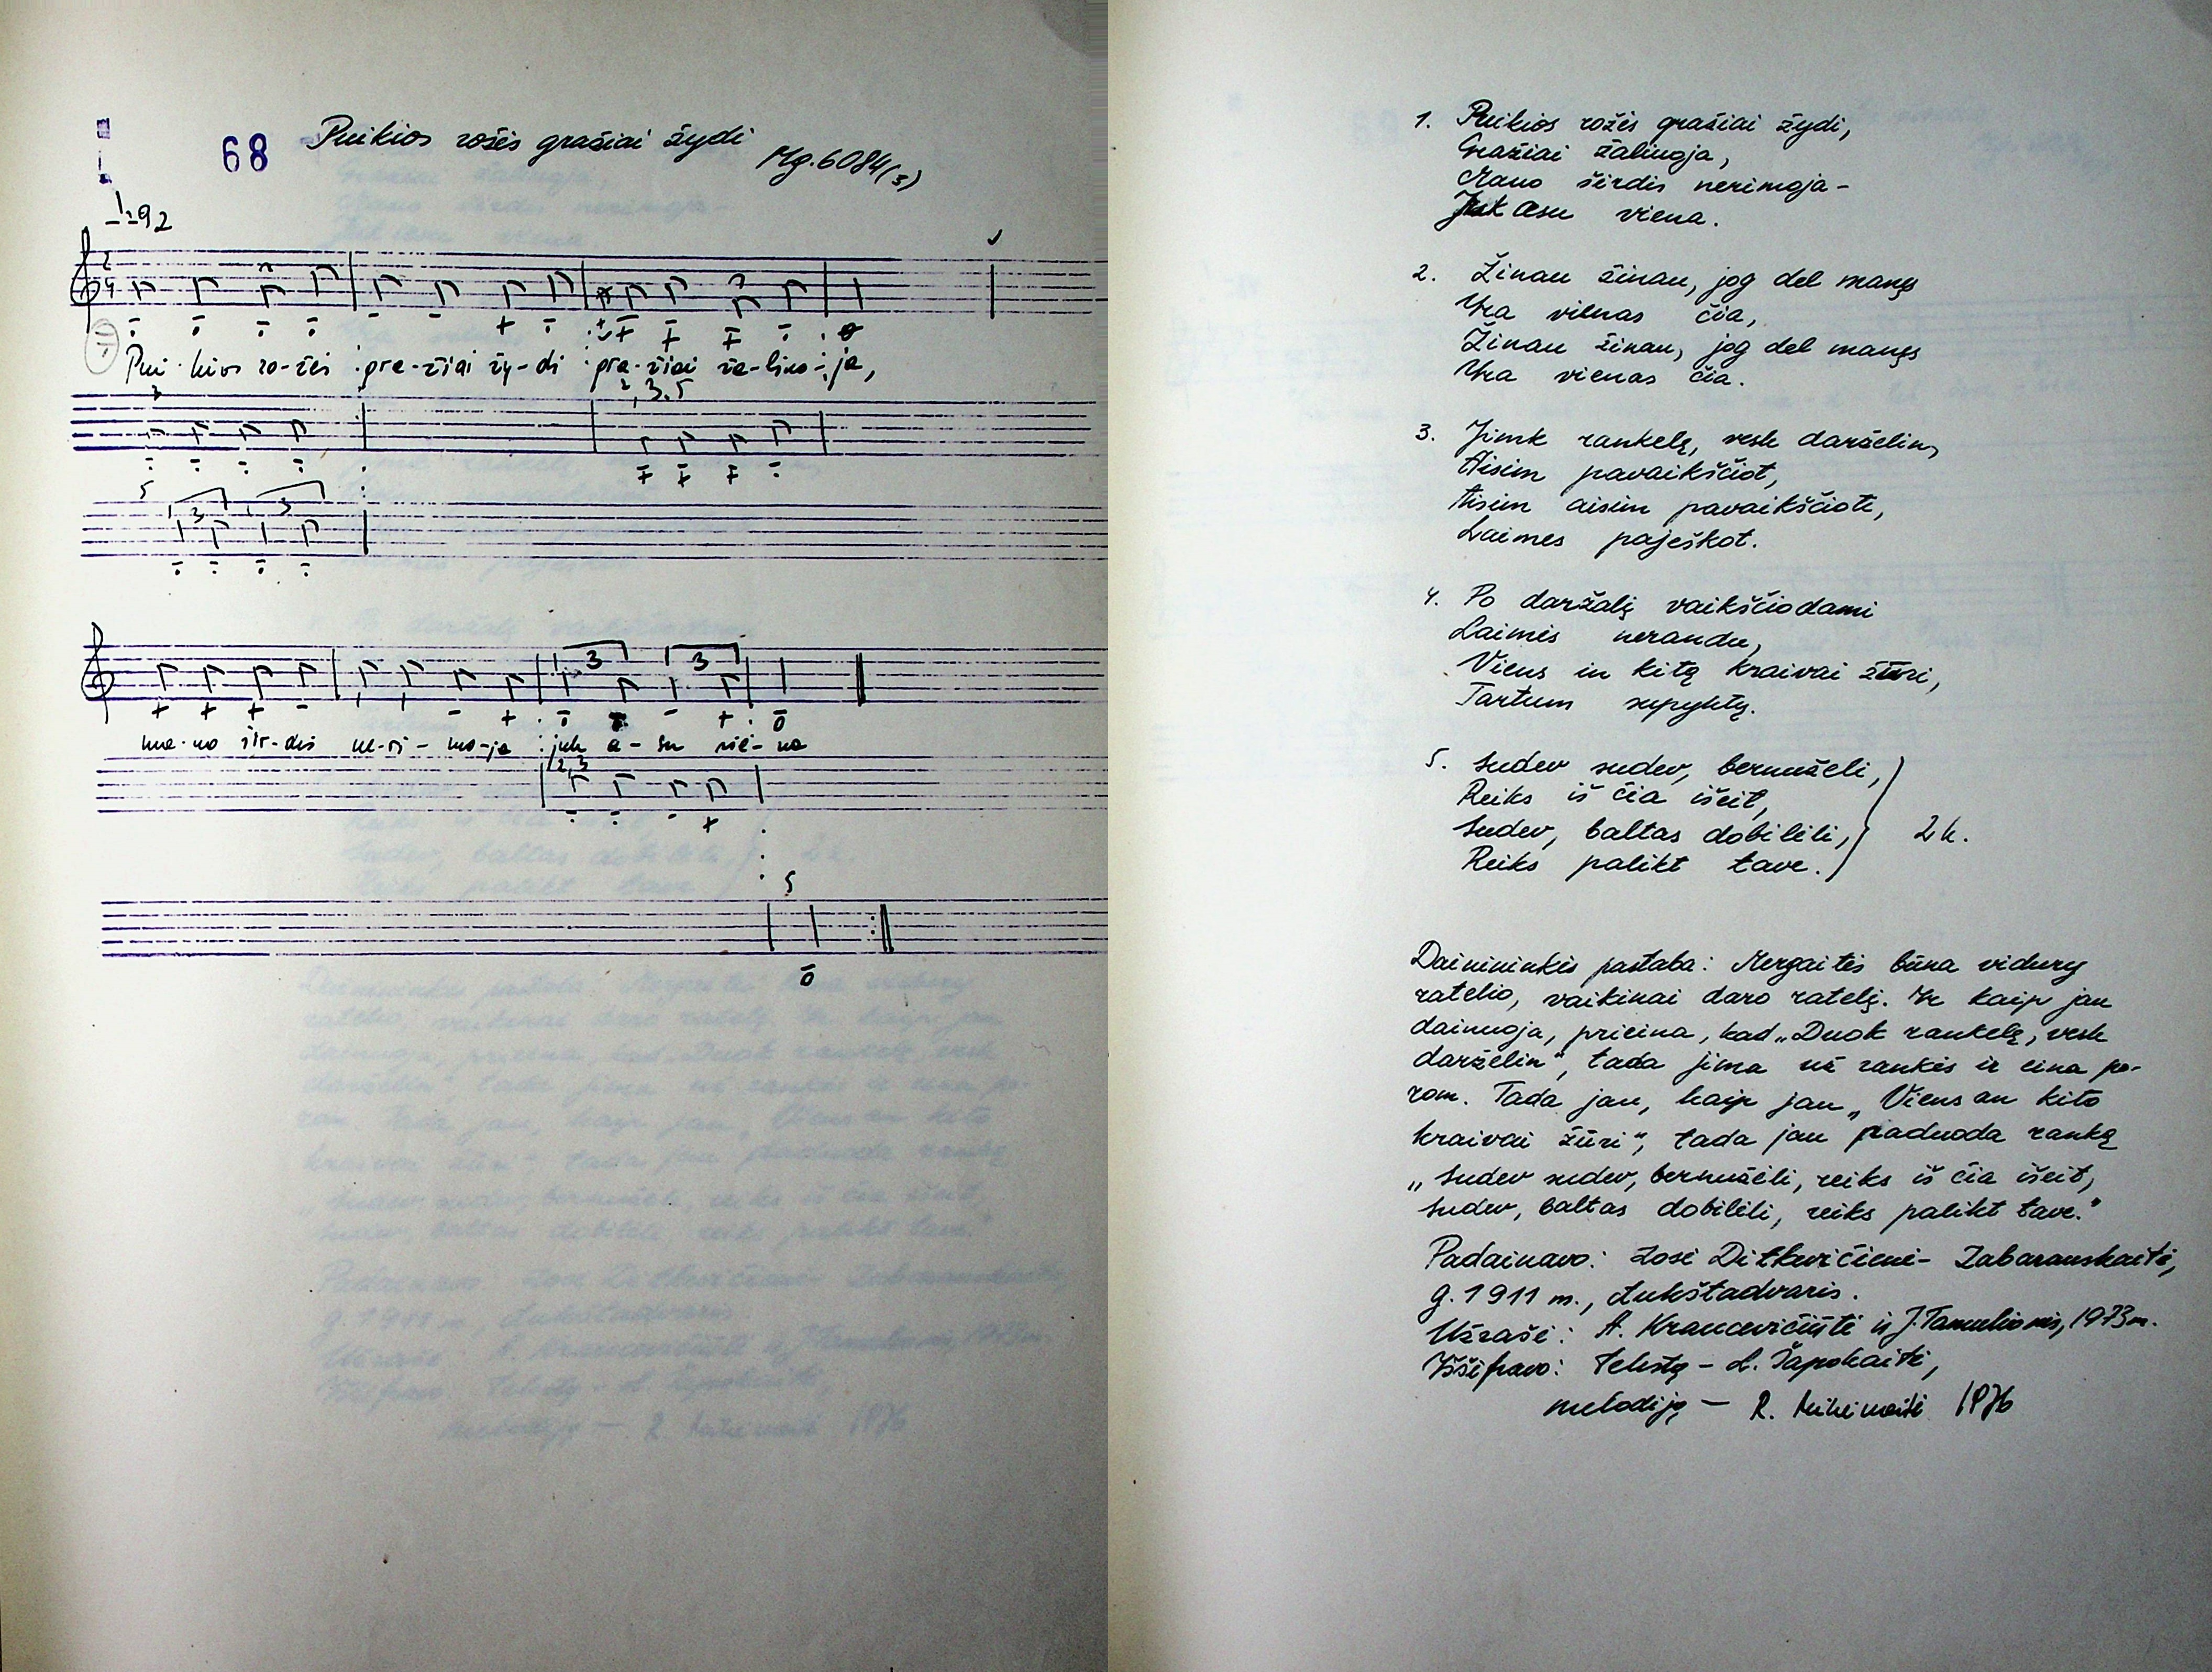 68 Puikios rožės gražiai žydi
Mg. 6084(3)
92
2
4
Pui-kios ro-žės gra-žiai žy-di gra-žiai ža-liuo-ja,
3
2, 3, 5
5
3 3
3 3
ma-no šir-dis ne-ri-mo-ja juk e-su vie-na
2, 3
5
1. Puikios rožės gražiai žydi,
Gražiai žaliuoja,
Mano širdis nerimoja-
Juk asu viena.
2. Žinau žinau, jog del manęs
Yra vienas čia,
Žinau žinau, jog del manęs
Yra vienas čia.
3. Jimk rankelę, vesk darželin,
Aisim pavaikščiot,
Aisim aisim pavaikščiote,
Laimes paješkot.
4. Po daržalį vaikščiodami
Laimės nerandu,
Viens in kitą kraivai žūri,
Tartum supyktų.
5. Sudev sudev, bernužėli,
Reiks iš čia išeit,
Sudev, baltas dobilėli,
Reiks palikt tave. 2 k.
Dainininkės pastaba: Mergaitės būna vidury
ratelio, vaikinai daro ratelį. Ir kaip jau
dainuoja, prieina, kad „Duok rankelę, vesk
darželin“, tada jima už rankės ir eina po-
rom. Tada jau, kaip jau „Viens an kito
kraivai žūri“, tada jau paduoda ranką
„Sudev sudev, bernužėli, reiks iš čia išeit,
Sudev, baltas dobilėli, reiks palikt tave.“
Padainavo: Zosė Ditkevičienė- Zabarauskaitė,
g. 1911 m., Aukštadvaris.
Užrašė: A. Krancevičiūtė ir J. Tamulionis, 1973 m.
Iššifravo: tekstą - A. Šapokaitė,
melodiją - R. 1976